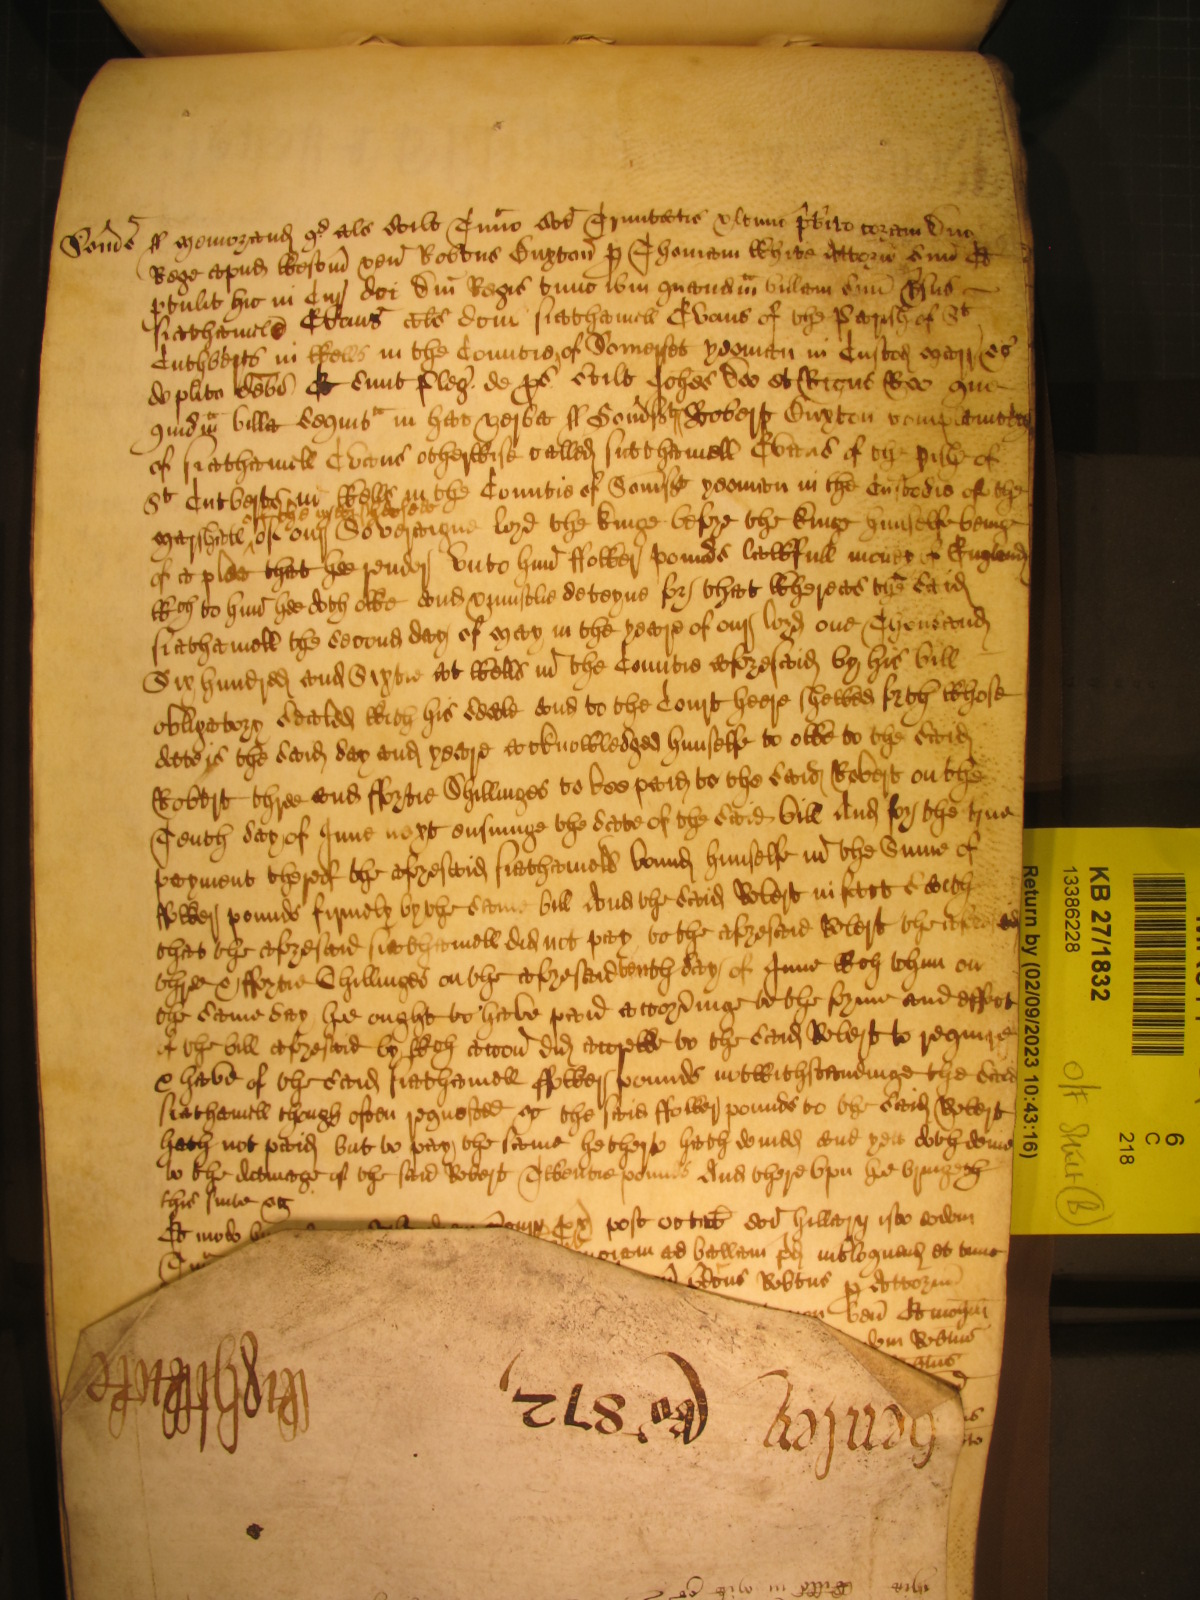 Somss ss Memorand qd als scilt Tmio Sce Trinitatis ultimo pterito coram Dno
Rege apud Westm ven Robtus Buxton p Thomam White Attorn suu Et
ptulit hic in Cur dci Dni Regis tunc ibm quandam billam suam vsus
Nathaniel Evans als dcm Nathaniell Evans of the Parish of St
Cuthberts in Wells in the Countie of Somerset yeoman in Custod Marr &c
de plito debi Et sunt pleg de ps scilt Johes Doe et Ricus Roe que
quidm billa sequit in hec verba ss Somsst Robert Buxton complaineth
of Nathaniell Evans otherwise called Nathaniell Evans of the pish of
St Cutberts in Wells in the Countie of Somsst yeoman in the Custodie of the
Marshall of the Marshalsea of our Soveraigne lord the Kinge before the Kinge himselfe beinge
of a plea that hee render unto him ffower pounds lawfull money of England
wch to him hee doth owe and uniustlie deteyne for that whereas the said
Nathaniell the second day of May in the yeare of our lord one Thousand
Six hundred and Sixtie at Wells in the Countie aforesaid by his bill
obligatory sealed with his seale and to the Court heere shewed forth whose
date is the said day and yeare acknowledged himselfe to owe to the said
Robert three and ffortie Shillinges to bee paid to the said Robert on the
Tenth day of June next ensuinge the date of the said bill And for the true
payment thereof the aforesaid Nathaniell bound himselfe in the Summe of
ffower pounds firmely by the same bill And the said Robert in fact saith
that the aforesaid Nathaniell did not pay to the aforesaid Robert the aforesaid
three & ffortie Shillinges on the aforesaid tenth day of June wch him on
the same day hee ought to have paid accordinge to the forme and effect
of the bill aforesaid by wch accon did accrewe to the said Robert to require
& have of the said Nathaniell ffower pounds notwithstandinge the said
Nathaniell though often requested &c the said ffower pounds to the said Robert
hath not paid but to pay the same hetherto hath denied and yett doth denie
to the damage of the said Robert Twentie pounds And thereupn hee bringeth
this suite &c
Et modo post octab Sci Hillarij isto eodem
ad billam pd inlloquend et tunc
pdcus Robtus p Attorn
ven Et
Robtus
Wightwicke
Ro 872
Henley
KB 27/1832
13386228
Off Site (B)
6
C
218
Return by (02/09/2023 10:43:16)